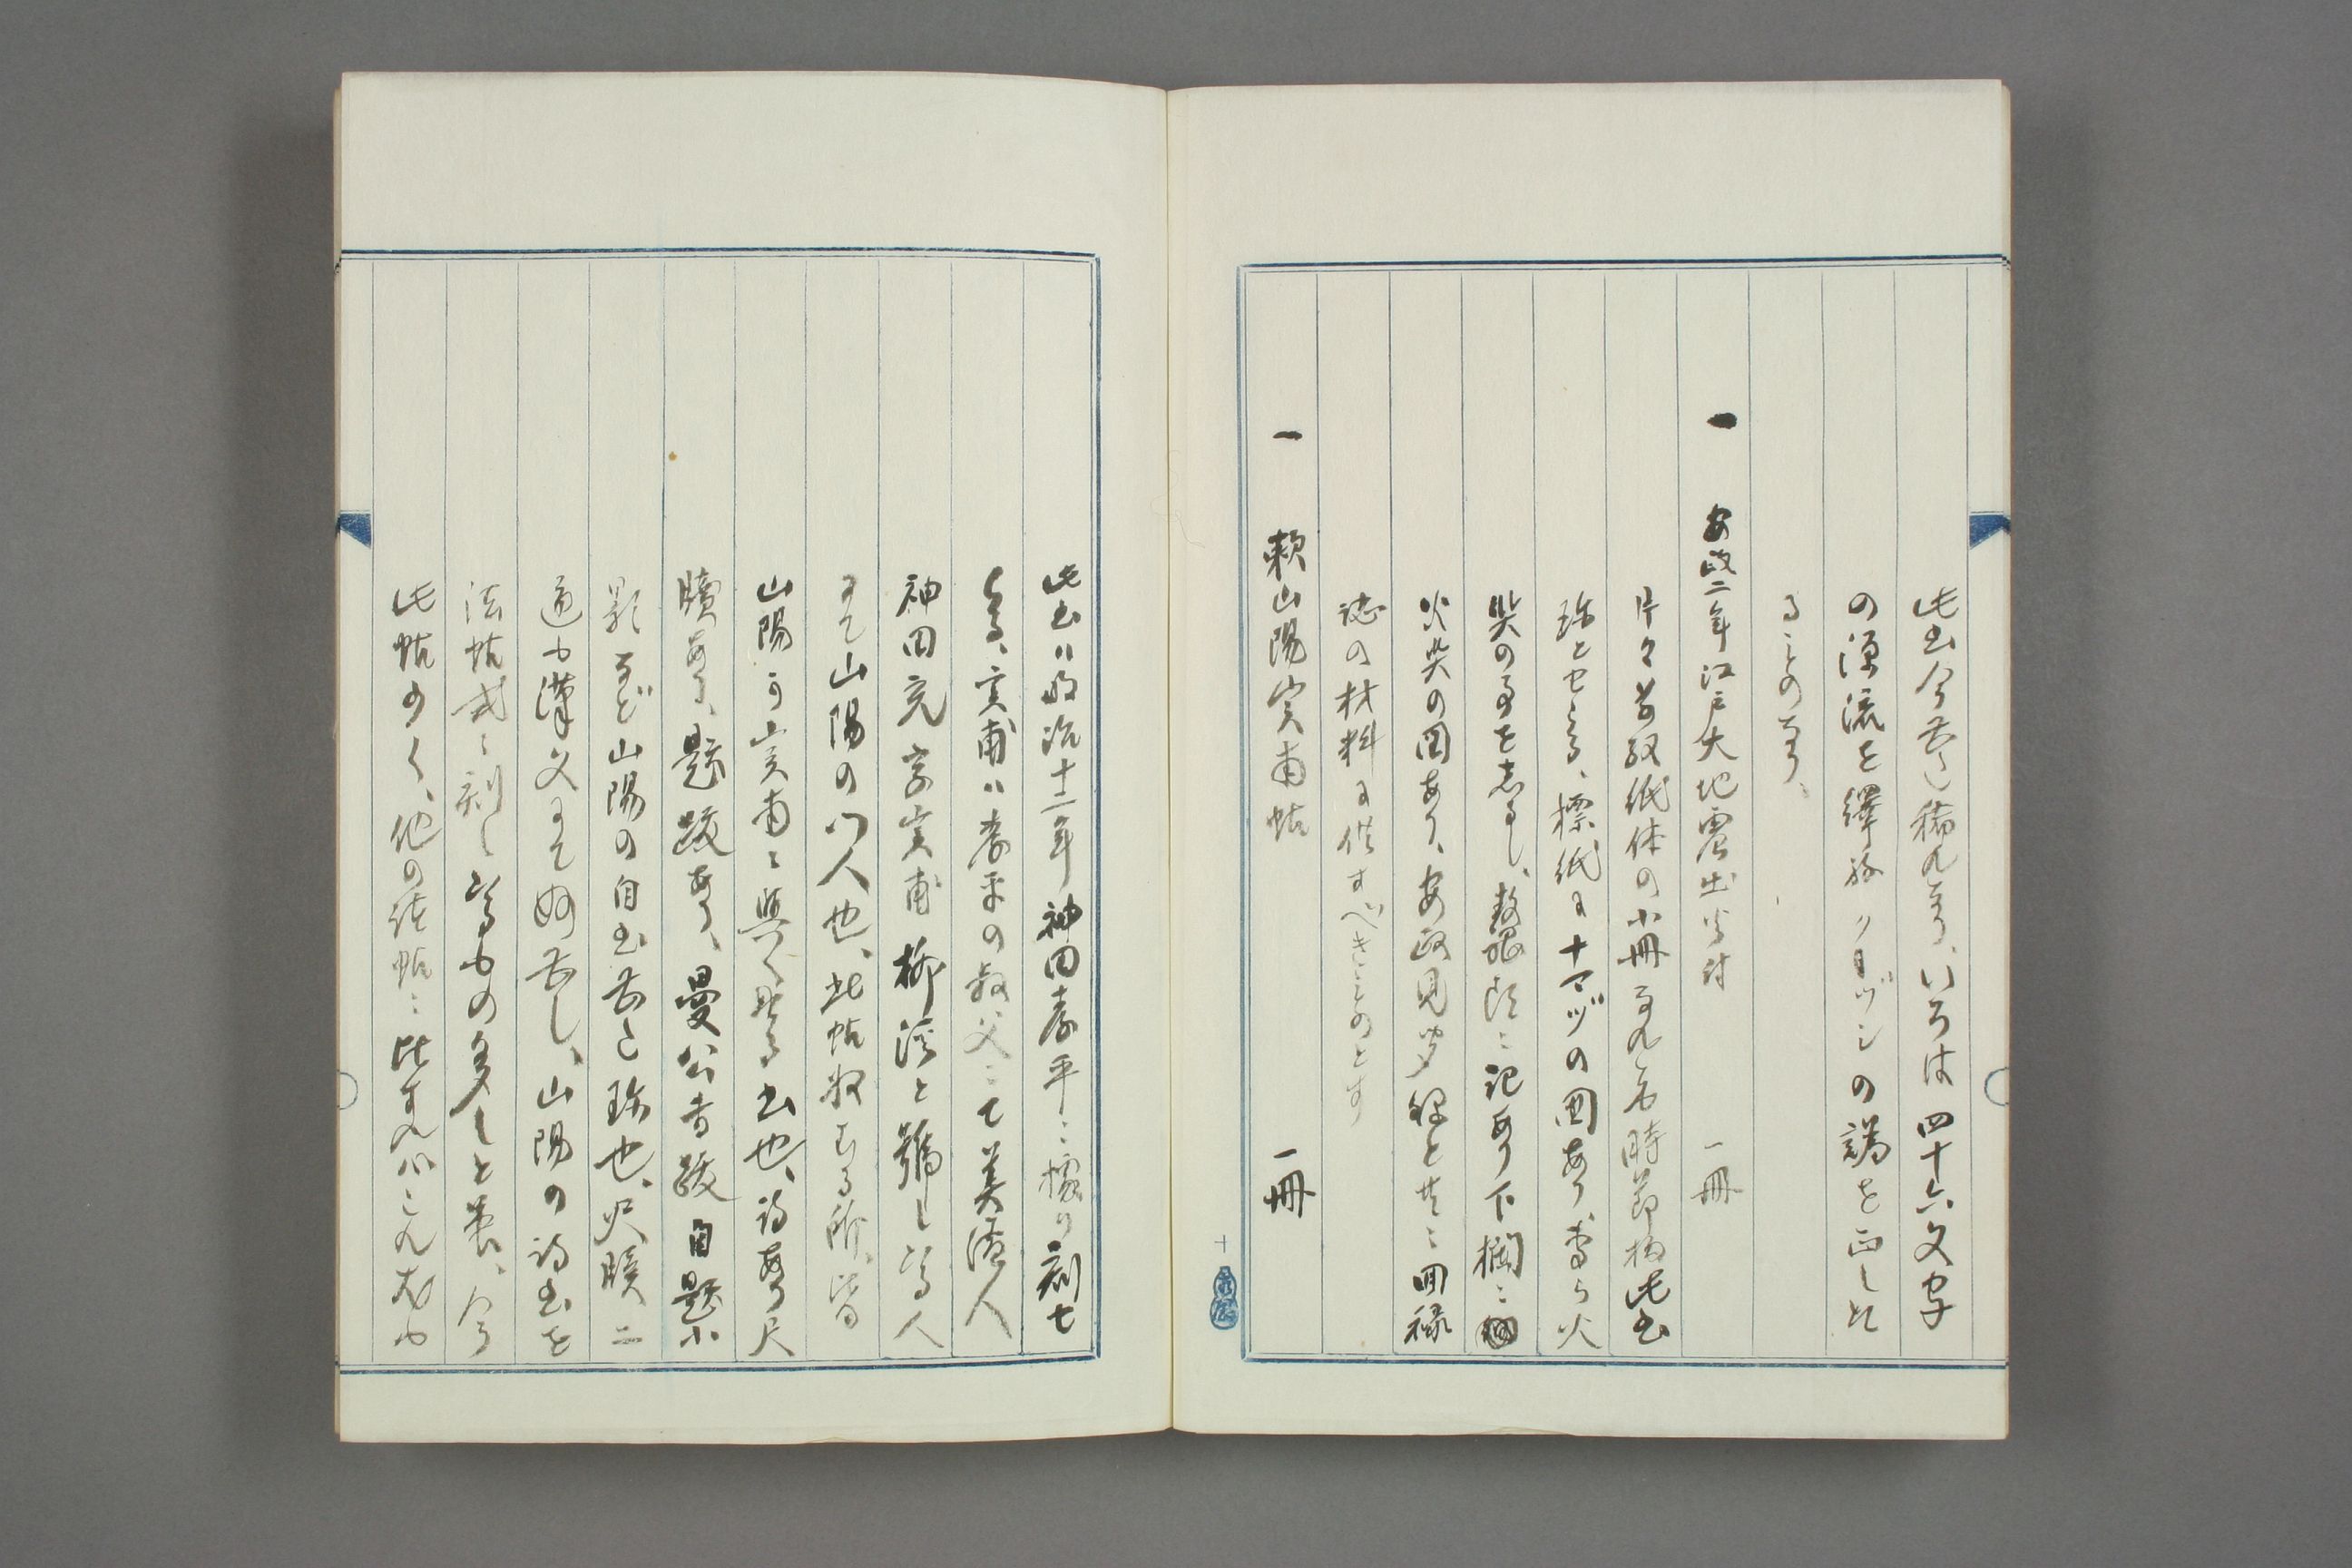 此書今甚だ稀れなり、いろは四十六文字
の源流を繹ね
の謬を正した
ることのなり、
一 安政二年江戸大地震出火付 一冊
片々たる紙体の小冊なれど時節柄此書
珍とせらる、標紙にナマヅの図あり、専ら火
災のことを志るし、記あり下欄ニ
火災の図あり、安政見聞録と共ニ回禄
誌の材料に供すべきものとす
一 頼山陽実甫帖 一冊
此書ハ明治十二年神田孝平ニ據り刻セ
らる、実甫ハ孝平の叔父ニて美濃人
神田充字実甫柳溪と號し、人
にて山陽の門人也、此帖收むる所、皆
山陽が実甫ニ與へたる書也、詩あり尺
牘あり、題跋あり、曼公書跋自題小
影など山陽の自書甚だ珍也、尺牘二
通も漢文にて如し、山陽の詩書を
法帖式ニ刻し、ものの多しと雖、今
此帖少く、他の法帖ニ比すれバこれ尤も